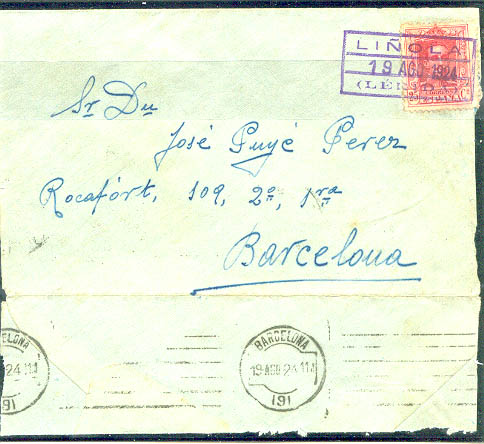 LIÑOLA
19 AGO 1924
(LÉRIDA)
25 C
Sr Dn
José Puyé Perez
Rocafórt, 109, 2º, 1ra
Barcelona
BARCELONA
19 AGO 24 11M
191
BARCELONA
19 AGO 24 11M
191